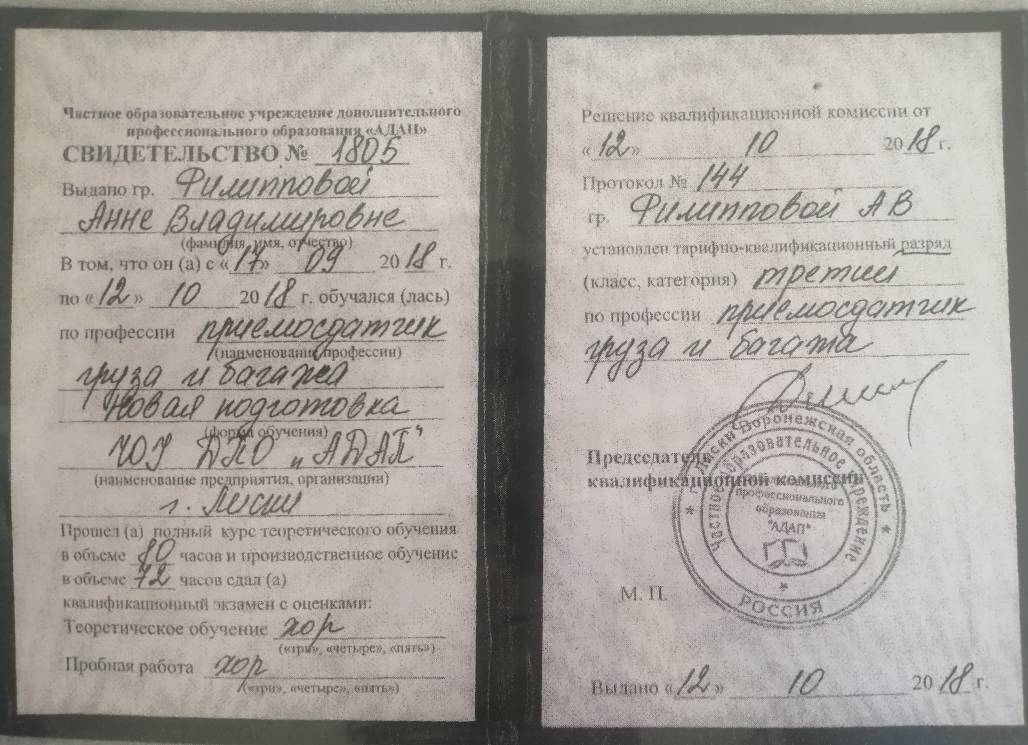 Частное образовательное учреждение дополнительного
профессионального образования «АДАП»
СВИДЕТЕЛЬСТВО № 1805
Выдано гр. Филипповой
Анне Владимировне
(фамилия, имя, отчество)
В том, что он (а) с «17» 09 2018 г.
по «12» 10 2018 г. обучался (лась)
по профессии приемосдатчик
(наименование профессии)
груза и багажа
Новая подготовка
(форма обучения)
ЧОУ ДПО "АДАП"
(наименование предприятия, организации)
г. Лиски
Прошел (а) полный курс теоретического обучения
в объеме 80 часов и производственное обучение
в объеме 72 часов сдал (а)
квалификационный экзамен с оценками:
Теоретическое обучение хор
(«три», «четыре», «пять»)
Пробная работа хор
(«три», «четыре», «пять»)
Решение квалификационной комиссии от
«12» 10 2018 г.
Протокол № 144
гр. Филипповой АВ
установлен тарифно-квалификационный разряд
(класс, категория) третий
по профессии приемосдатчик
груза и багажа
Председатель
квалификационной комиссии
г. Лиски Воронежская область
Частное образовательное учреждение
профессионального
образования
"АДАП"
РОССИЯ
М. П.
Выдано «12» 10 2018 г.